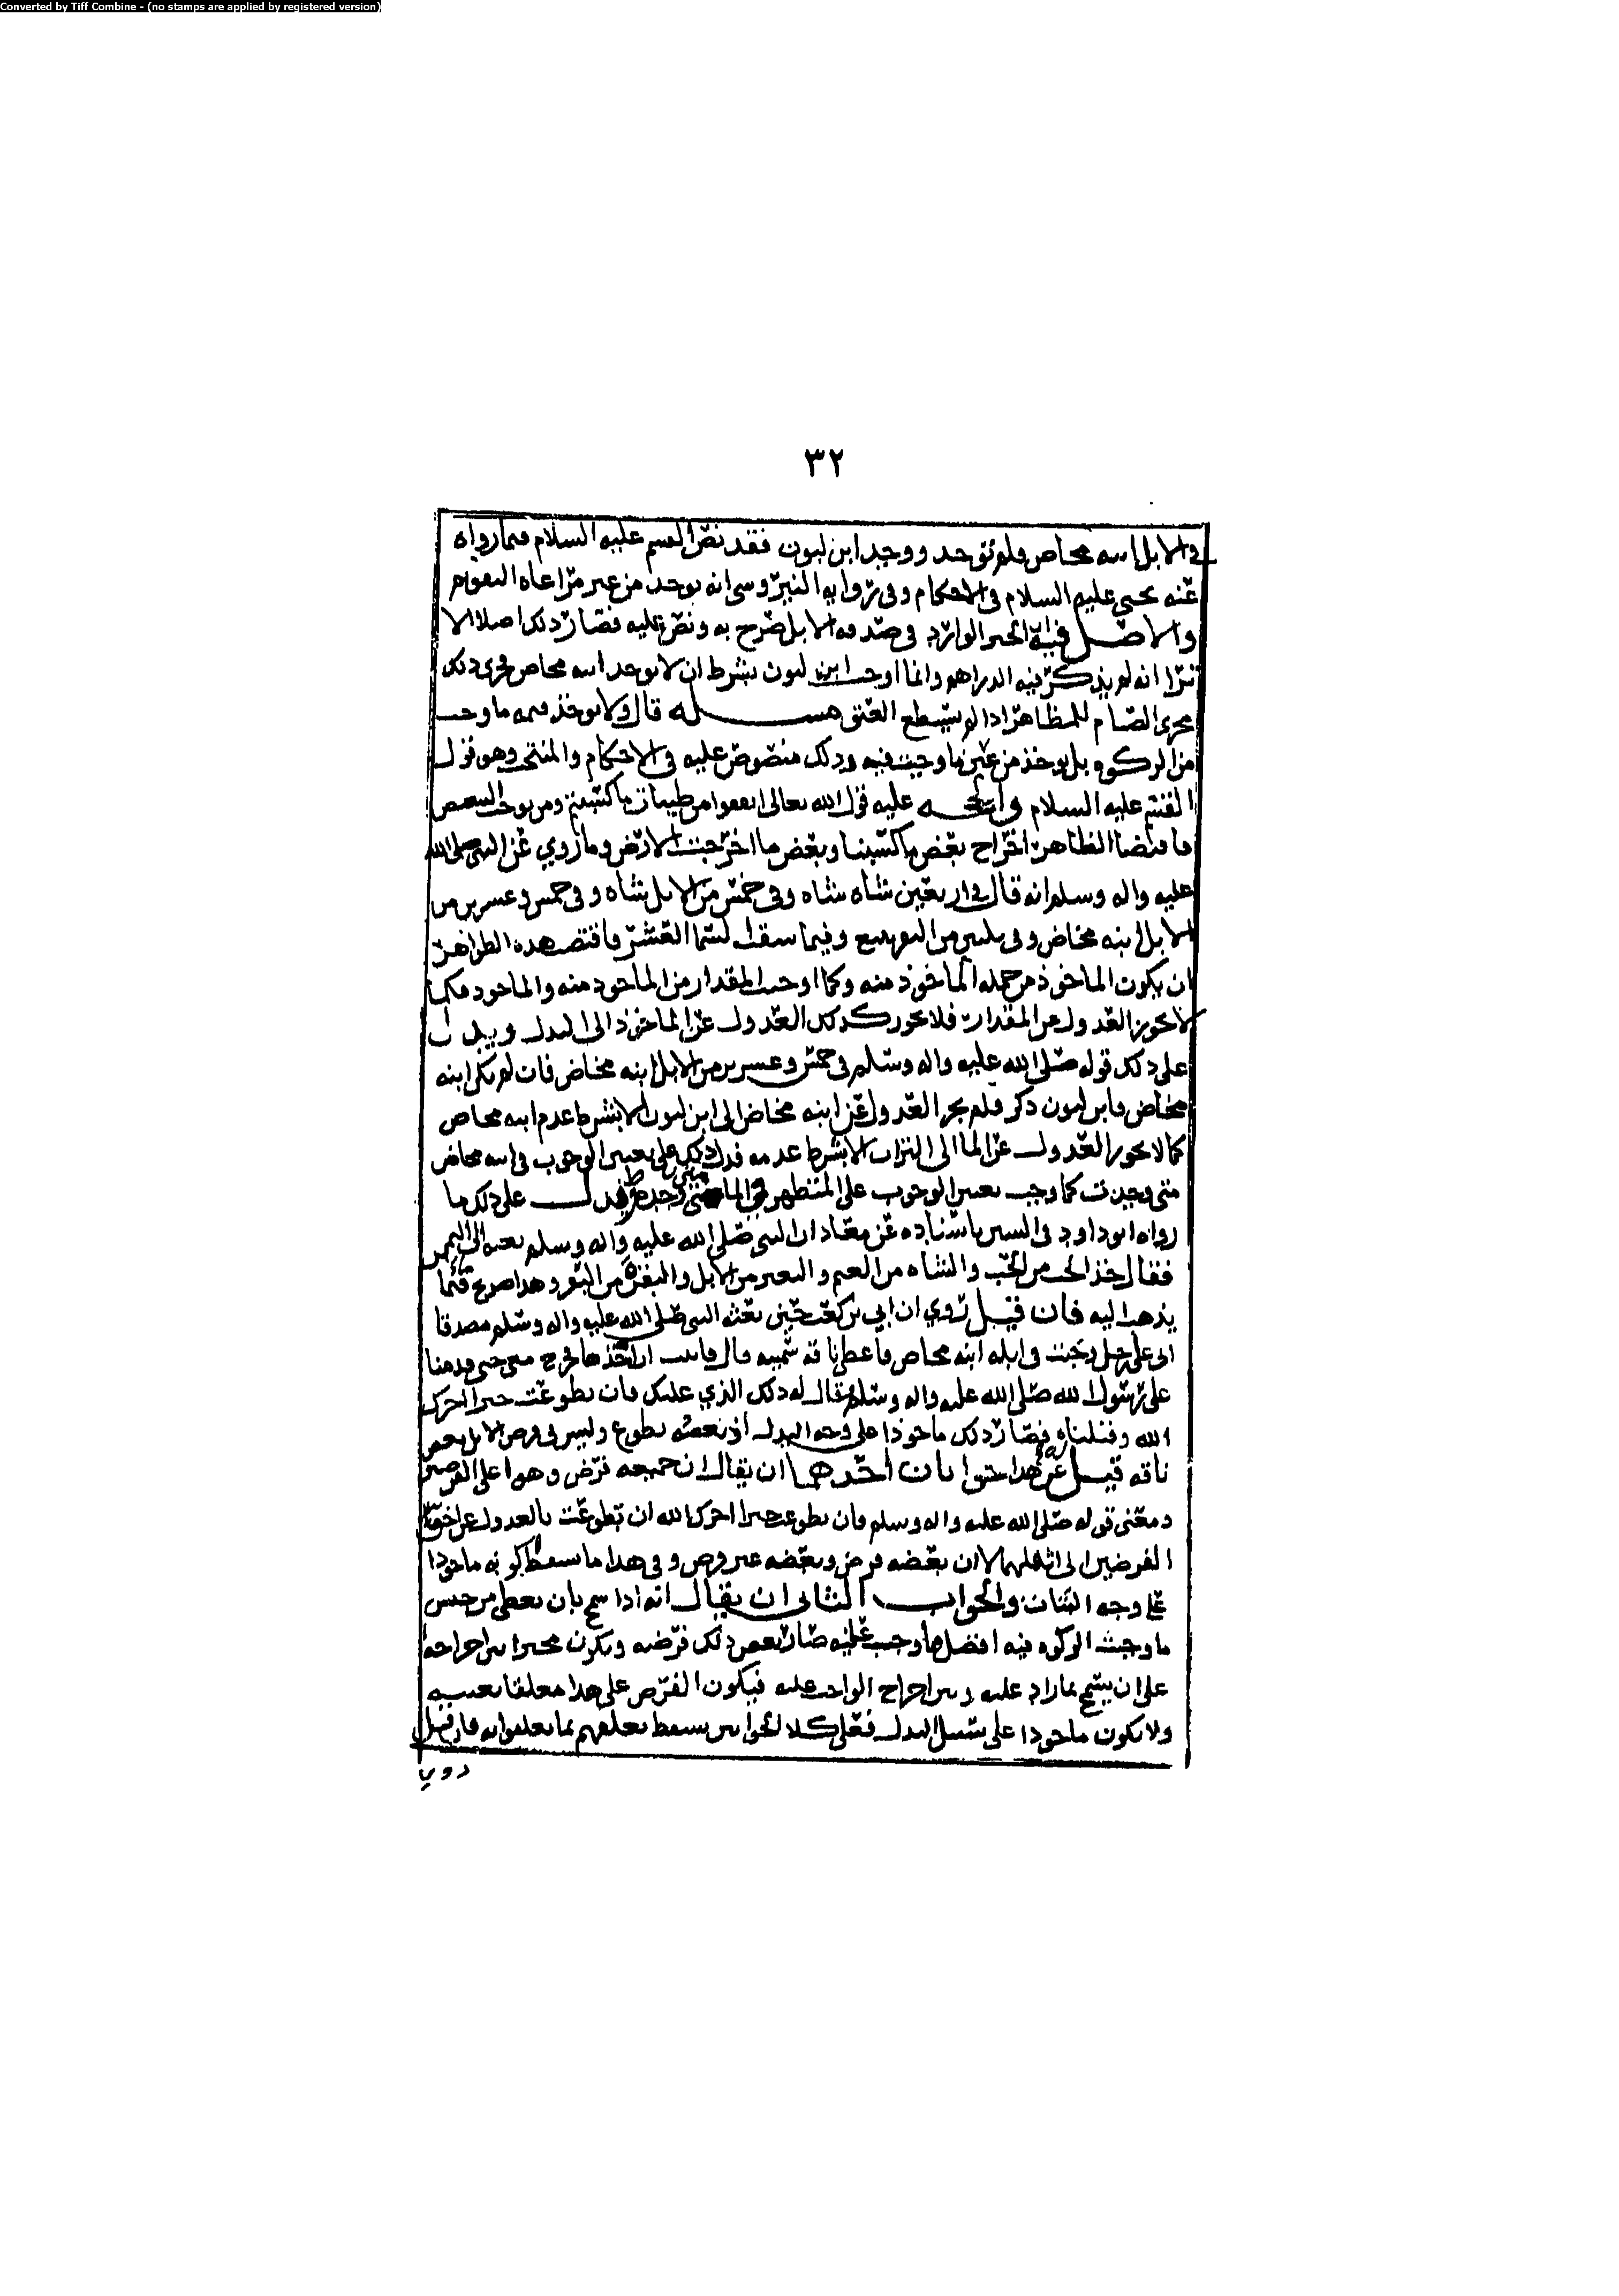 Converted by Tiff Combine - (no stamps are applied by registered version)
٣٢
في الابل ابنه مخاض فلم توجد ووجد ابن لبون فقد نص القسم عليه السلام فيما رواه
عنه يحيى عليه السلام في الاحكام وفي روايه النيروسي انه يوخذ من غير مراعاه التقويم
والاصل فيه ان الخبر الوارد في صدقه الابل صرح به ونص عليه فصار ذلك اصلا الا
ترا انه لم يذكر فيه الدراهم وانما اوجب ابن لبون بشرط ان لا توجد ابنه مخاض فجرى ذلك
مجرى الصيام للمظاهر اذا لم يستطع العتق مسـله قال ولا يوخذ قيمه ما وجب
من الزكوه بل يوخذ من عين ما وجبت فيه وذلك منصوص عليه في الاحكام والمنتخب وهو قول
القسم عليه السلام والحجه عليه قول الله تعالى انفقوا من طيبات ما كسبتم ومن توجب التبعيض
فاقتضا الظاهر اخراج بعض ما كسبنا وبعض ما اخرجت الارض وما روي عن النبي صلى الله
عليه واله وسلم انه قال في اربعين شاه شاه وفي خمس من الابل شاه وفي خمس وعشرين من
الابل ابنه مخاض وفي ثلثين من البقر تبيع وفيما سقت السما العشر فاقتضت هذه الظواهر
ان يكون الماخوذ من جمله الماخوذ منه وكما اوجب المقدار من الماخوذ منه والماخوذ فكما
لا يجوز العدول عن المقدار فلا يجوز كذلك العدول عن الماخوذ الى البدل ويدل
على ذلك قوله صلى الله عليه واله وسلم في خمس وعشرين من الابل ابنه مخاض فان لم تكن ابنه
مخاض فابن لبون ذكر فلم يجز العدول عن ابنه مخاض الى ابن لبون الا بشرط عدم ابنه مخاض
كما لا يجوز العدول عن الما الى التراب الا بشرط عدمه فدل ذلك على تعيين الوجوب في ابنه مخاض
متى وجدت كما وجب تعيين الوجوب على المتطهر في الما متى وجد ويدل على ذلك ما
رواه ابو داود في السنن باسناده عن معاذ ان النبي صلى الله عليه واله وسلم بعثه الى اليمن
فقال خذ الحب من الحب والشاه من الغنم والبعير من الابل والبقره من البقر وهذا صريح فيما
يذهب اليه فان قيل روي ان ابي بن كعب حين بعثه النبي صلى الله عليه واله وسلم مصدقا
اتى على رجل وجبت في ابله ابنه مخاض فاعطى ناقه سمينه قال فابيت ان اخذها فخرج معي حتى قدمنا
على رسول الله صلى الله عليه واله وسلم فقال له ذلك الذي عليك فان تطوعت خيرا اجرك
الله وقبلناه فصار ذلك ماخوذا على وجه البدل اذ بعضه تطوع وليس في فرض الابل بعض
ناقه قيل له عن هذا جوابان احدهما ان يقال ان جميعه فرض وهو اعلى الفرضين
ومعنى قوله صلى الله عليه واله وسلم فان تطوعت خيرا اجرك الله ان تطوعت بالعدول عن اخف
الفرضين الى اثقلهما لا ان بعضه فرض وبعضه غير فرض وفي هذا ما يسقط كونه ماخوذا
على وجه والجواب الثاني ان يقال انه اذا سمح بان يعطي من جنس
ما وجبت الزكوه فيه افضل مما وجب عليه صار بعض ذلك فرضه ويكون مخيرا بين اخراجه
على ان يسمح بما زاد عليه وبين اخراج الواجب عليه فيكون الفرض على هذا معلقا بعينه
ولا يكون ماخوذا على سبيل البدل فعلى كلا الجوابين يسقط تعلقهم بما تعلقوا به فان قيل
روي